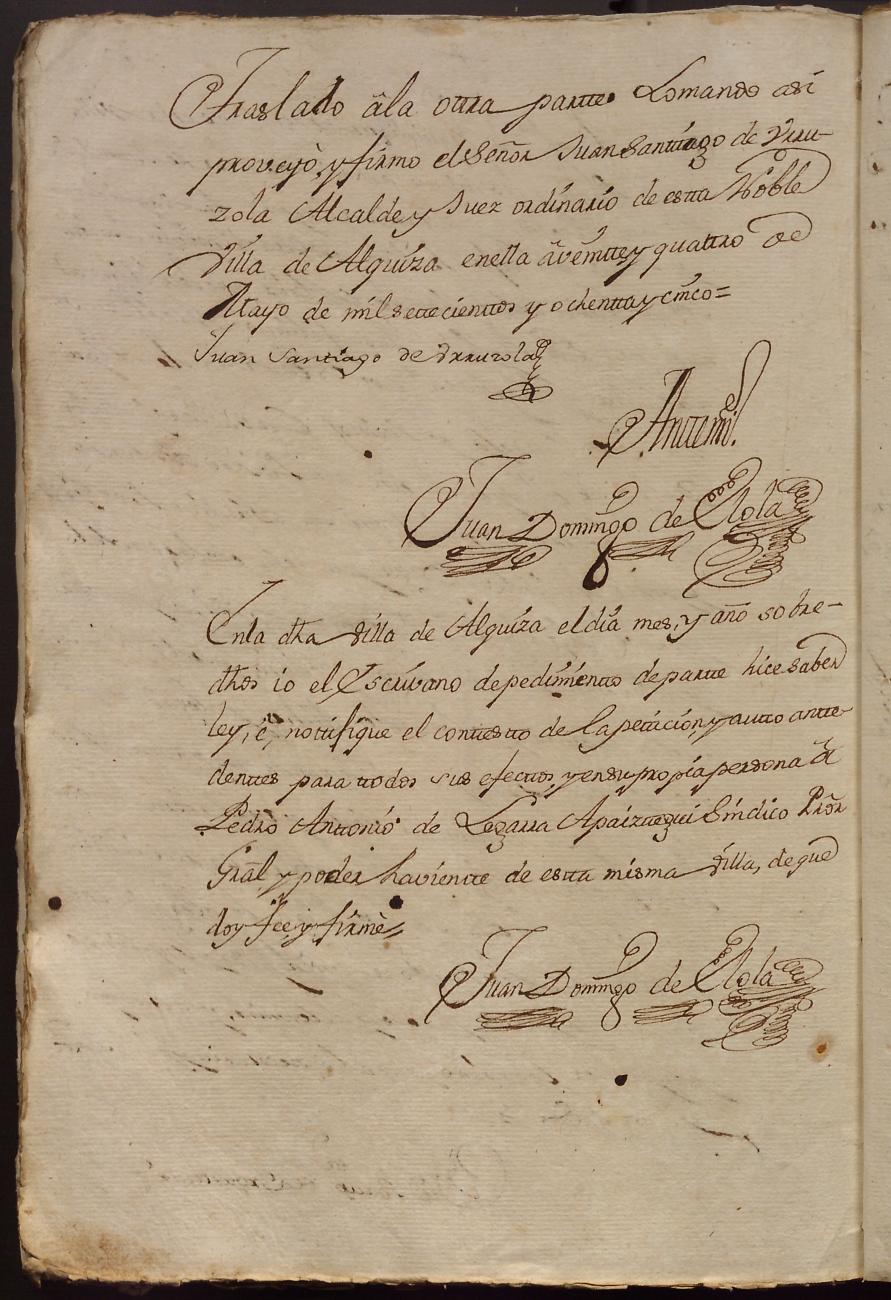 Traslado âla otra partte Lomando asi
proveyò, y firmo el Señor Juan Santtiago de Vrru-
zola Alcalde y Juez ordinario de estta Noble
Villa de Alquiza enella â veintte y quattro de
Mayo de mil settecienttos y ochentta y cinco=
Juan Santiago de Vrruzola
Anttemi.
Juan Domingo de Elola
Enla dha villa de Alquiza el dia mes, y año sobre-
dhos io el Escrivano de pedimientto de partte hice saber
ley, è, nottifique el conttestto de la peticion, y autto antte-
denttes para ttodos sus efecttos, y ensu propia persona â
Pedro Anttonio de Legarra Apaizttegui Sindico Prõr
Gral, y poder havientte de estta misma villa, de que
doy feey firmè
Juan Domingo de Elola